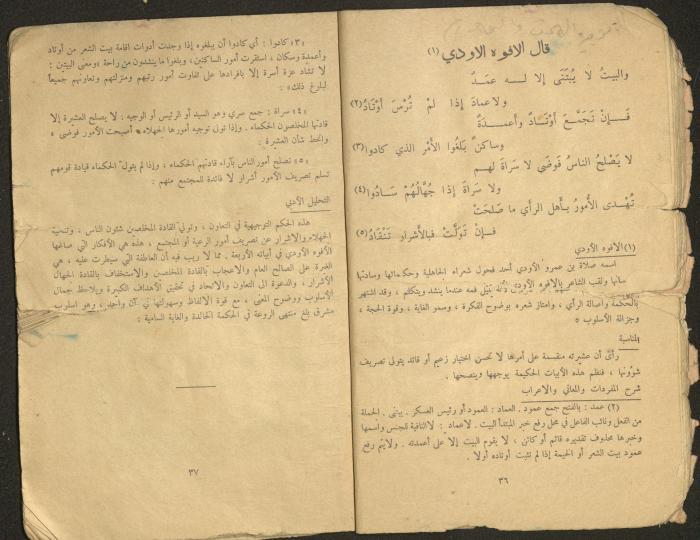 قال الافوه الاودي (١)
والبيتُ لا يُبْتَنَى إلا لـــه عمَــدٌ
ولاعمادَ إذا لمْ تُرْسَ أوْتَادُ(٢)
فـــإنْ تَجَمَّـعَ أوْتَـــادٌ وأعمــدةٌ
وساكنٌ بَلَغُوا الأمْر الذي كادوا(٣)
لا يَصْلحُ الناسُ فَوضَى لا سَراةَ لهــم
ولا سَراةَ إذا جُهَّالُهُمْ سَــادُوا(٤)
تُهْــدى الأُمورُ بـأهل الرأي ما صلَحَتْ
فــإنْ تَوَلَّتْ فبالأَشرار تَنْقَادُ(٥)
(١) الافوه الأودي
اسمه صلاة بن عمرو الأودي أحد فحول شعراء الجاهلية وحكمائها وساداتها
بالحكمة وأصالة الرأي ، وامتاز شعره بوضوح الفكرة ، وسمو الغاية ، وقوة الحجة ،
وجزالة الأسلوب ٥
المناسبة
رأى أن عشيرته منقسمة على أمرها لا تحسن اختيار زعيم أو قائد يتولى تصريف
شؤونها ، فنظم هذه الأبيات الحكيمة يوجهها وينصحها .
شرح المفردات والمعاني والاعراب
(٢) عمد : بالفتح جمع عمود . العماد : العمود أو رئيس العسكر . يبتنى . الجملة
من الفعل ونائب الفاعل في محل رفع خبر المبتدأ البيت . لاعماد : لا النافية للجنس واسمها
وخبرها محذوف تقديره قائم أو كائن ، لا يقوم البيت إلا على أعمدته . ولايتم رفع
عمود بيت الشعر أو الخيمة إذا لم تثبت أوتاده أولا .
٣٦
«٣» كادوا : أي كادوا أن يبلغوه إذا وجدت أدوات اقامة بيت الشعر من أوتاد
وأعمدة وسكان ، استقرت أمور الساكنين، وبلغوا ما ينشدون من راحة «ومعنى البيتين :
لا تشاد عزة أسرة إلا بافرادها على تفاوت أمور رتبهم ومنزلتهم وتعاونهم جميعاً
لبلوغ ذلك» :
«٤» سراة : جمع سري وهو السيد أو الرئيس أو الوجيه . لا يصلح العشيرة إلا
قادتها المخلصون الحكماء . وإذا تولى توجيه أمورها الجهلاء أصبحت الأمور فوضى ٥
وانحط شأن العشيرة :
«٥» تصلح أمور الناس بآراء قادتهم الحكماء ، وإذا لم يتولّ الحكماء قيادة قومهم
تسلم تصريف الأمور أشرار لا فائدة للمجتمع منهم :
التحليل الأدبي
هذه الحكم التوجيهية في التعاون ، وتولي القادة المخلصين شئون الناس ، وتنحية
الجهلاء والاشرار عن تصريف أمور الرعية أو المجتمع ، هذه هي الأفكار التي صاغها
الأفوه الأودي في أبياته الأربعة . مما لا ريب فيه أن العاطفة التي سيطرت عليه ، هي
الغيرة على الصالح العام والاعجاب بالقادة المخلصين والاستخفاف بالقادة الجهال
الأشرار ، والدعوة الى التعاون والاتحاد في تحقيق الأهداف الكبيرة ويلاحظ جمال
الأسلوب ووضوح المعنى ، مع قوة الالفاظ وسهولتها في آن واحد ، وهو اسلوب
مشرق بلغ منتهى الروعة في الحكمة الخالدة والغاية السامية :
٣٧